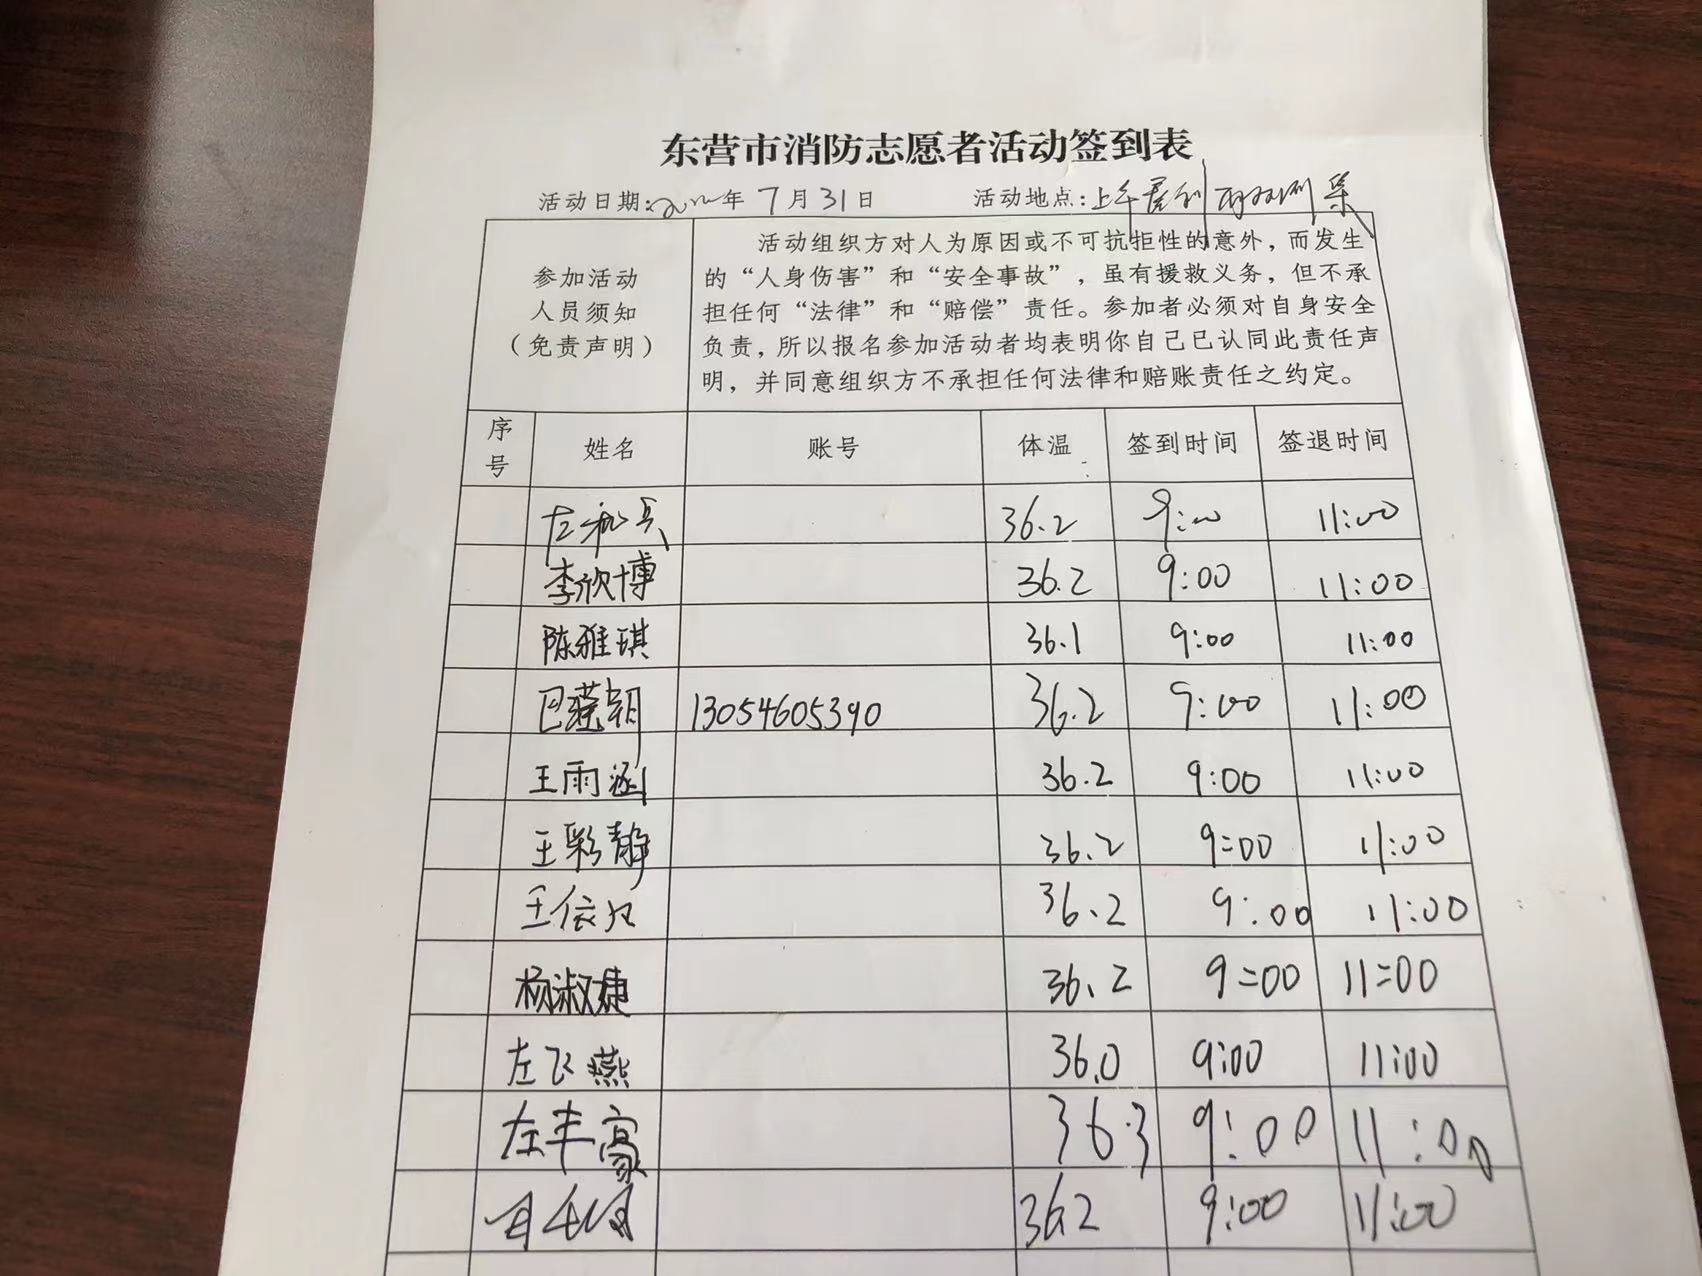 东营市消防志愿者活动签到表
活动日期: 年 7月31日 活动地点:上午
参加活动
人员须知
(免责声明)
活动组织方对人为原因或不可抗拒性的意外，而发生
的“人身伤害”和“安全事故”，虽有援救义务，但不承
担任何“法律”和“赔偿”责任。参加者必须对自身安全
负责，所以报名参加活动者均表明你自己已认同此责任声
明，并同意组织方不承担任何法律和赔账责任之约定。
序号 姓名 账号 体温 签到时间 签退时间
36.2 9:00 11:00
李欣博 36.2 9:00 11:00
陈雅琪 36.1 9:00 11:00
13054605390 36.2 9:00 11:00
王雨涵 36.2 9:00 11:00
王彩静 36.2 9:00 11:00
36.2 9:00 11:00
杨淑婕 36.2 9:00 11:00
左飞燕 36.0 9:00 11:00
左丰豪 36.3 9:00 11:00
36.2 9:00 11:00